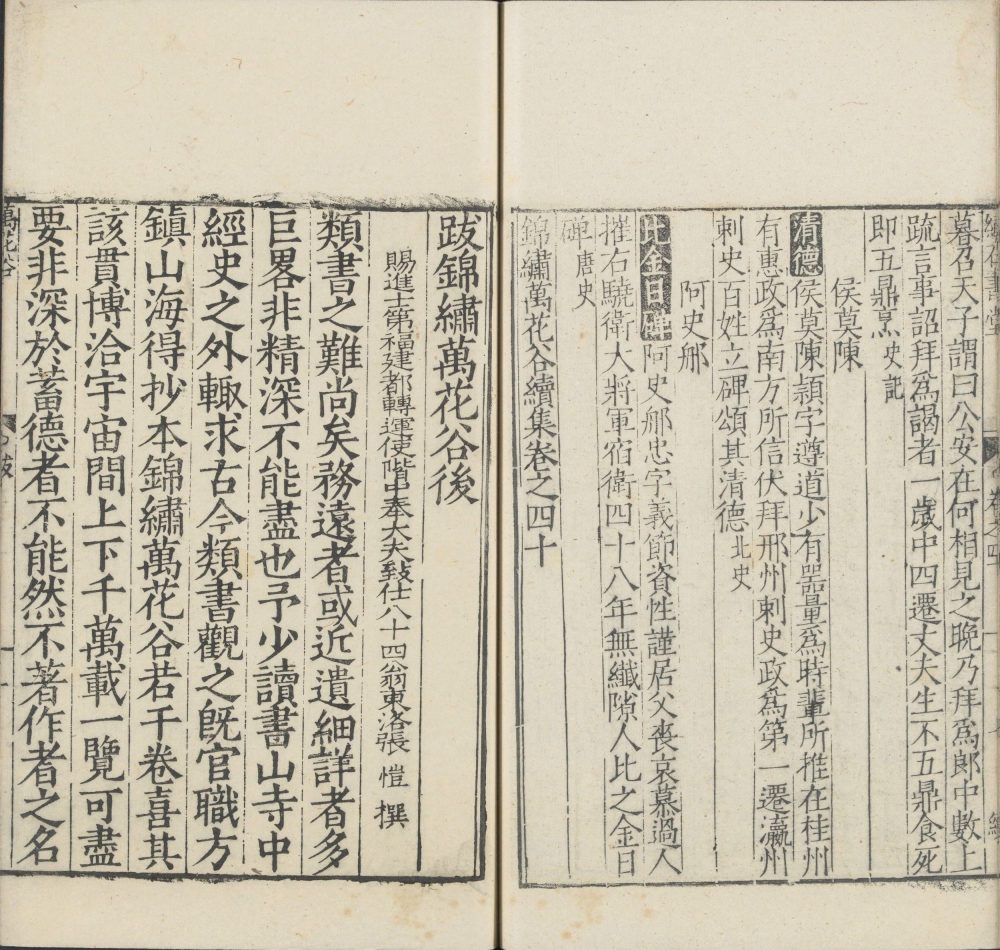 暮召天子謂曰公安在何相見之晚乃拜爲郎中數上
疏言事詔拜爲謁者一歲中四遷丈夫生不五鼎食死
即五鼎烹史記
侯莫陳
清德侯莫陳頴字遵道少有器量爲時輩所推在桂州
有惠政爲南方所信伏拜邢州刺史政爲第一遷瀛州
刺史百姓立碑頌其清德北史
阿史那
比金日磾阿史那忠字義節資性謹居父喪哀慕過人
擢右驍衛大將軍宿衛四十八年無纖隙人比之金日
磾唐史
錦繡萬花谷續集卷之四十
跋錦繡萬花谷後
賜進士第福建都轉運使階中奉大夫致仕八十四翁東洛張愷撰
類書之難尚矣務遠者或近遺細詳者多
巨畧非精深不能盡也予少讀書山寺中
經史之外輙求古今類書觀之旣官職方
鎮山海得抄本錦繡萬花谷若干卷喜其
該貫博洽宇宙間上下千萬載一覽可盡
要非深於蓄德者不能然不著作者之名
萬花谷
跋
一